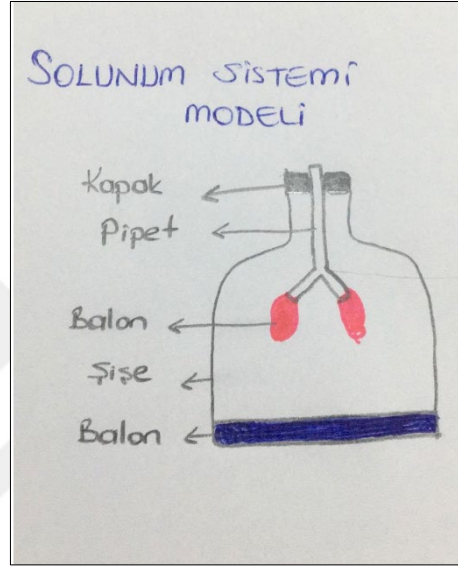 SOLUNUM SİSTEMİ
MODELİ
Kapak
Pipet
Balon
Şişe
Balon